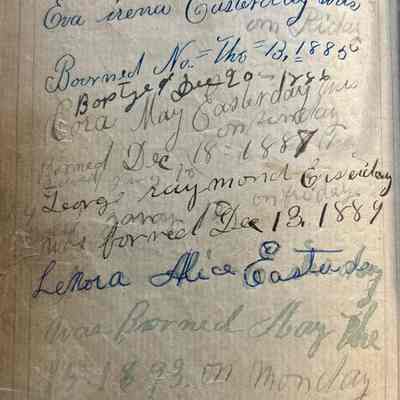 Eva irena Easterday was
on Friday
Boorned No = The = 13, 1885
Baptized Dec 20 1886
Cora May Easterday was
on sunday
Borned Dec 18 - 1887 The
George raymond Easerday
on friday
was borned Dec 13, 1889
Lenora Alice Easterday
was Borned May The
15 1893, on monday